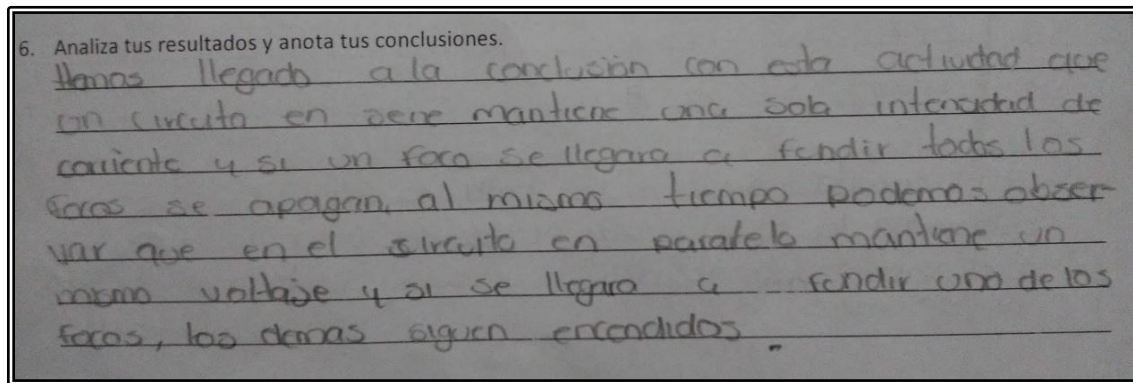 6. Analiza tus resultados y anota tus conclusiones.
Hemos llegado a la conclusión con esta actividad que
un circuito en serie mantiene una sola intensidad de
corriente y si un foco se llegara a fundir todos los
focos se apagan, al mismo tiempo podemos obser-
var que en el circuito en paralelo mantiene un
mismo voltaje y si se llegara a fundir uno de los
focos, los demas siguen encendidos.